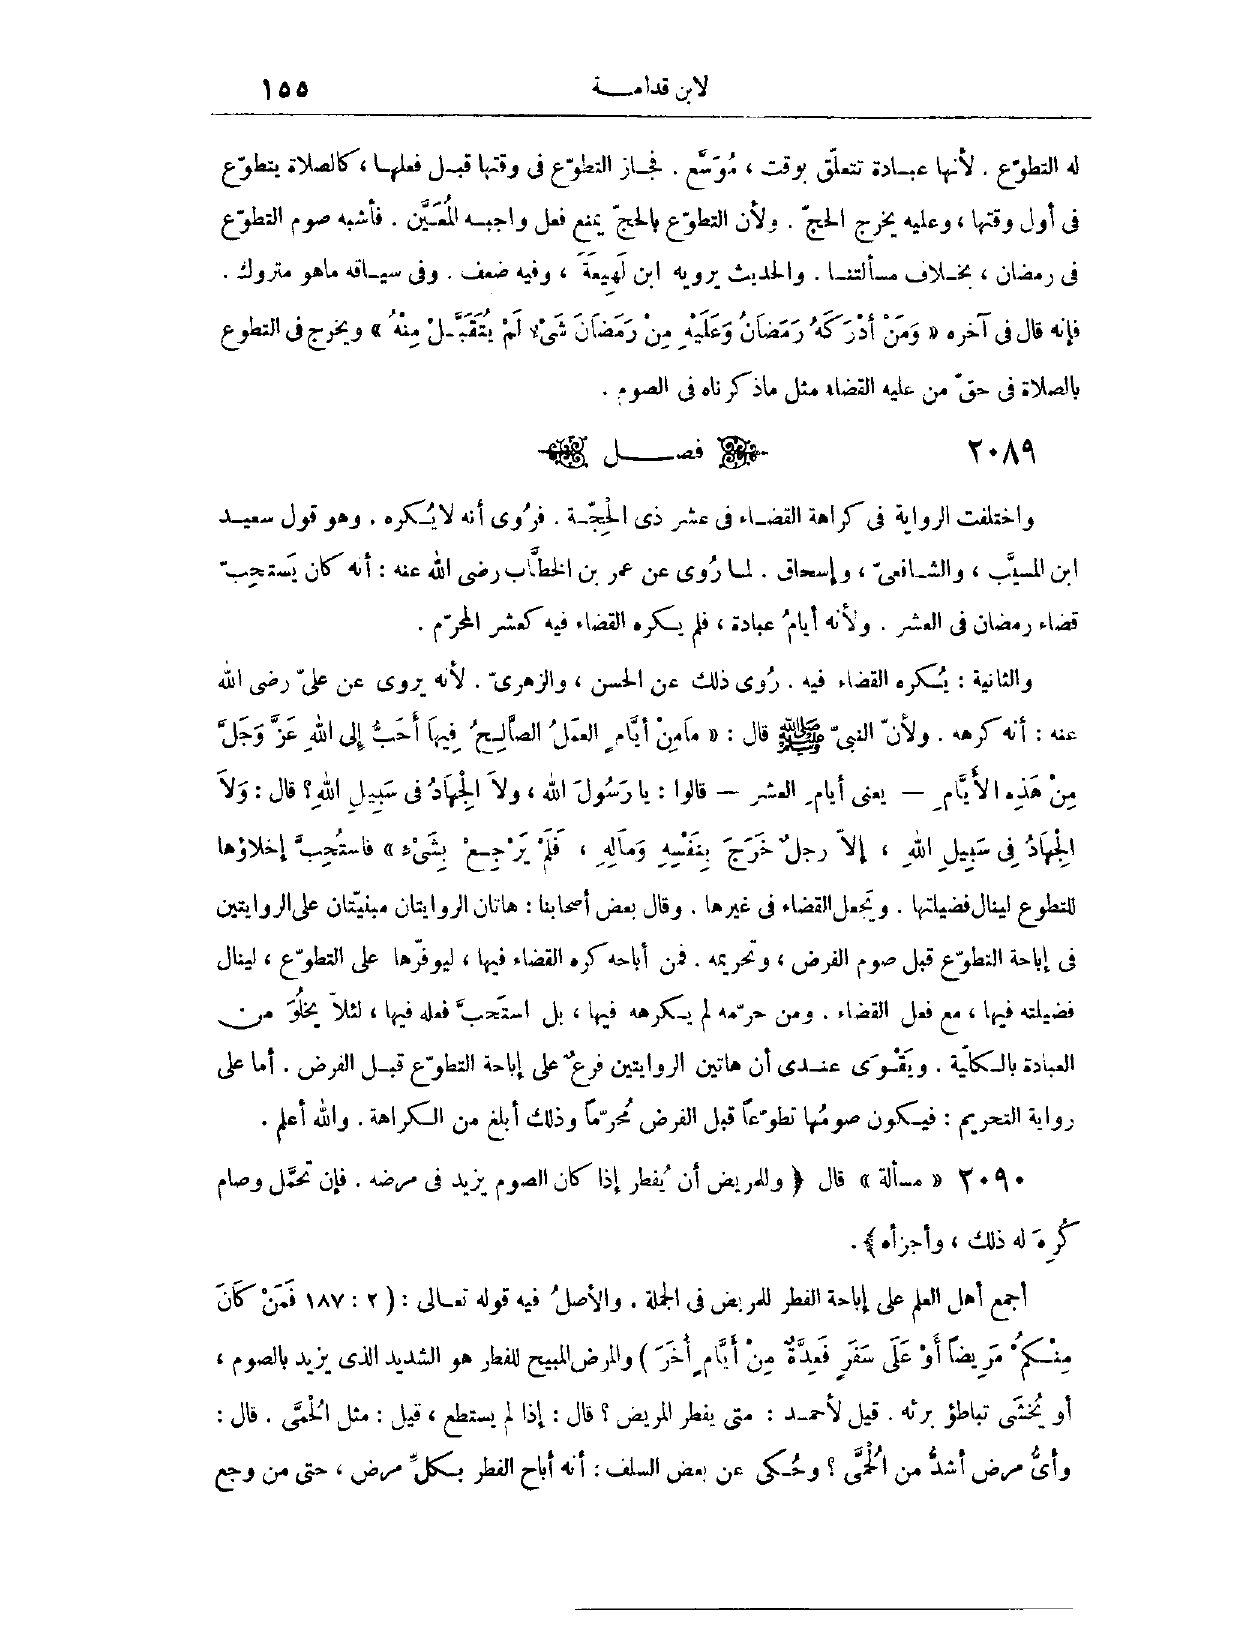 لابن قدامـــة ١٥٥
له التطوّع . لأنها عبـادة تتعلّق بوقت ، مُوَسَّع . فجـاز التطوّع فى وقتها قبـل فعلهـا ، كالصلاة يتطوّع
فى أول وقتها ، وعليه يخرج الحجّ . ولأن التطوّع بالحجّ يمنع فعل واجبـه المُعَيَّن . فأشبه صوم التطوّع
فى رمضان ، بخـلاف مسألتنـا . والحديث يرويه ابن لَهِيعَةَ ، وفيه ضعف . وفى سيـاقه ماهو متروك .
فإنه قال فى آخره « وَمَنْ أَدْرَكَهُ رَمَضَانُ وَعَلَيْهِ مِنْ رَمَضَانَ شَىْءٌ لَمْ يُتَقَبَّـلْ مِنْهُ » ويخرج فى التطوع
بالصلاة فى حقّ من عليه القضاء مثل ماذكرناه فى الصوم .
٢٠٨٩ فصـــل
واختلفت الرواية فى كراهة القضـاء فى عشر ذى الحِجّـة . فرُوى أنه لا يُـكره . وهو قول سعيـد
ابن المسيَّب ، والشـافعىّ ، وإسحاق . لمـا رُوى عن عمر بن الخطَّاب رضى الله عنه : أنه كان يَستحِبّ
قضاء رمضان فى العشر . ولأنه أيامُ عبادة ، فلم يـكره القضاء فيه كعشر المحرّم .
والثانية : يُـكره القضاء فيه . رُوى ذلك عن الحسن ، والزهرىّ . لأنه يروى عن علىّ رضى الله
عنه : أنه كرهه . ولأنّ النبىّ ﷺ قال : « مَامِنْ أَيَّامٍ العمَلُ الصَّالِـحُ فِيهَا أَحَبُّ إلى اللهِ عَزَّ وَجَلَّ
مِنْ هَذِهِ الأَيَّامِ — يعنى أيامِ العشر — قالوا : يا رَسُولَ الله ، ولاَ الْجِهَادُ فى سَبِيلِ اللهِ ؟ قال : وَلاَ
الْجِهَادُ فِى سَبِيلِ اللهِ ، إلاّ رجلٌ خَرَجَ بِنَفْسِهِ وَمَالِهِ ، فَلَمْ يَرْجِـعْ بِشَىْءٍ » فاستُحِبَّ إخلاؤها
للتطوع لينال فضيلتها . ويَجعل القضاء فى غيرها . وقال بعض أصحابنا : هاتان الروايتان مبنيّتان على الروايتين
فى إباحة التطوّع قبل صوم الفرض ، وتحريمه . فمن أباحه كره القضاء فيها ، ليوفّرها على التطوّع ، لينال
فضيلته فيها ، مع فعل القضاء . ومن حرّمه لم يـكرهه فيها ، بل استَحبَّ فعله فيها ، لئلاّ يخلُوَ من
العبادة بالـكلّية . ويَقْـوَى عنـدى أن هاتين الروايتين فرعٌ على إباحة التطوّع قبـل الفرض . أما على
رواية التحريم : فيـكون صومُها تطوّعاً قبل الفرض مُحرّماً وذلك أبلغ من الـكراهة . والله أعلم .
٢٠٩٠ « مسألة » قال ﴿ وللمريض أن يُفطر إذا كان الصوم يزيد فى مرضه . فإن تحمّل وصام
كُرِهَ له ذلك ، وأجزأه ﴾ .
أجمع أهل العلم على إباحة الفطر للمريض فى الجملة . والأصلُ فيه قوله تعـالى : ( ٢ : ١٨٧ فَمَنْ كَانَ
مِنْـكُمْ مَرِيضاً أَوْ عَلَى سَفَرٍ فَعِدَّةٌ مِنْ أَيَّامٍ أُخَرَ ) والمرض المبيح للفطر هو الشديد الذى يزيد بالصوم ،
أو يُخشَى تباطؤ برئه . قيل لأحمـد : متى يفطر المريض ؟ قال : إذا لم يستطع ، قيل : مثل الحُمَّى . قال :
وأىُّ مرض أشدُّ من الْحُمَّى ؟ وحُـكى عن بعض السلف : أنه أباح الفطر بـكلِّ مرض ، حتى من وجع